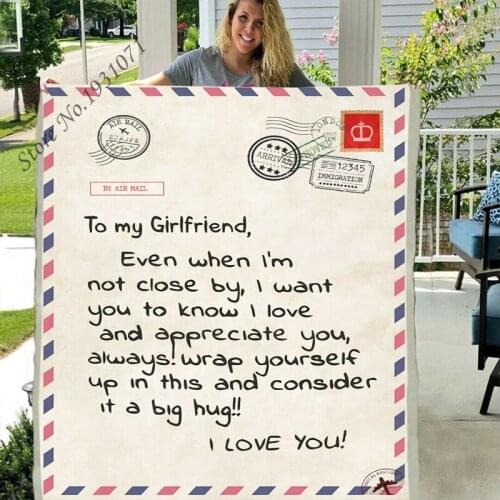 Store No.:91931071
AIR MAIL
LONDON
ARRIVED
12345
IMMIGRATION
BY AIR MAIL
To my Girlfriend,
Even when I'm
not close by, I want
you to know I love
and appreciate you,
always! wrap yourself
up in this and consider
it a big hug!!
I LOVE YOU!